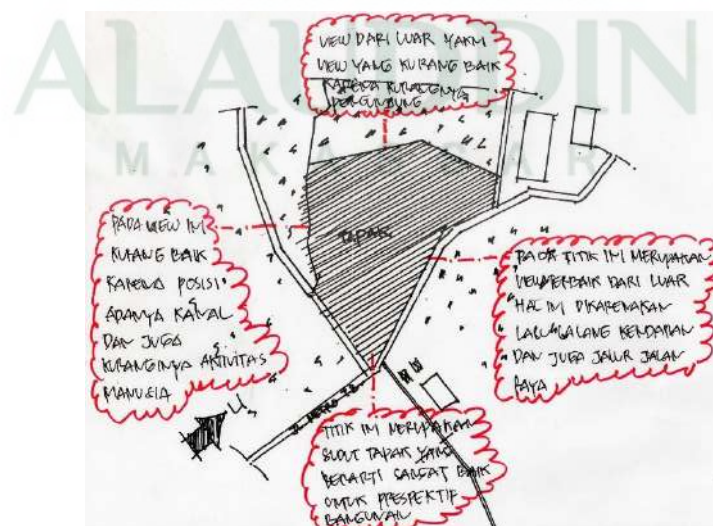 ALAUDDIN
MAKASSAR
VIEW DARI LUAR YAKNI
VIEW YANG KURANG BAIK
KARENA KURANGNYA
PENGUNJUNG
TAPAK
PADA VIEW INI
KURANG BAIK
KARENA POSISI
ADANYA KANAL
DAN JUGA
KURANGNYA AKTIVITAS
MANUSIA
PADA TITIK INI MERUPAKAN
VIEW TERBAIK DARI LUAR
HAL INI DIKARENAKAN
LALU LALANG KENDARAAN
DAN JUGA JALUR JALAN
RAYA
U
TITIK INI MERUPAKAN
SUDUT TAPAK YANG
BERARTI SANGAT BAIK
UNTUK PRESPEKTIF
BANGUNAN